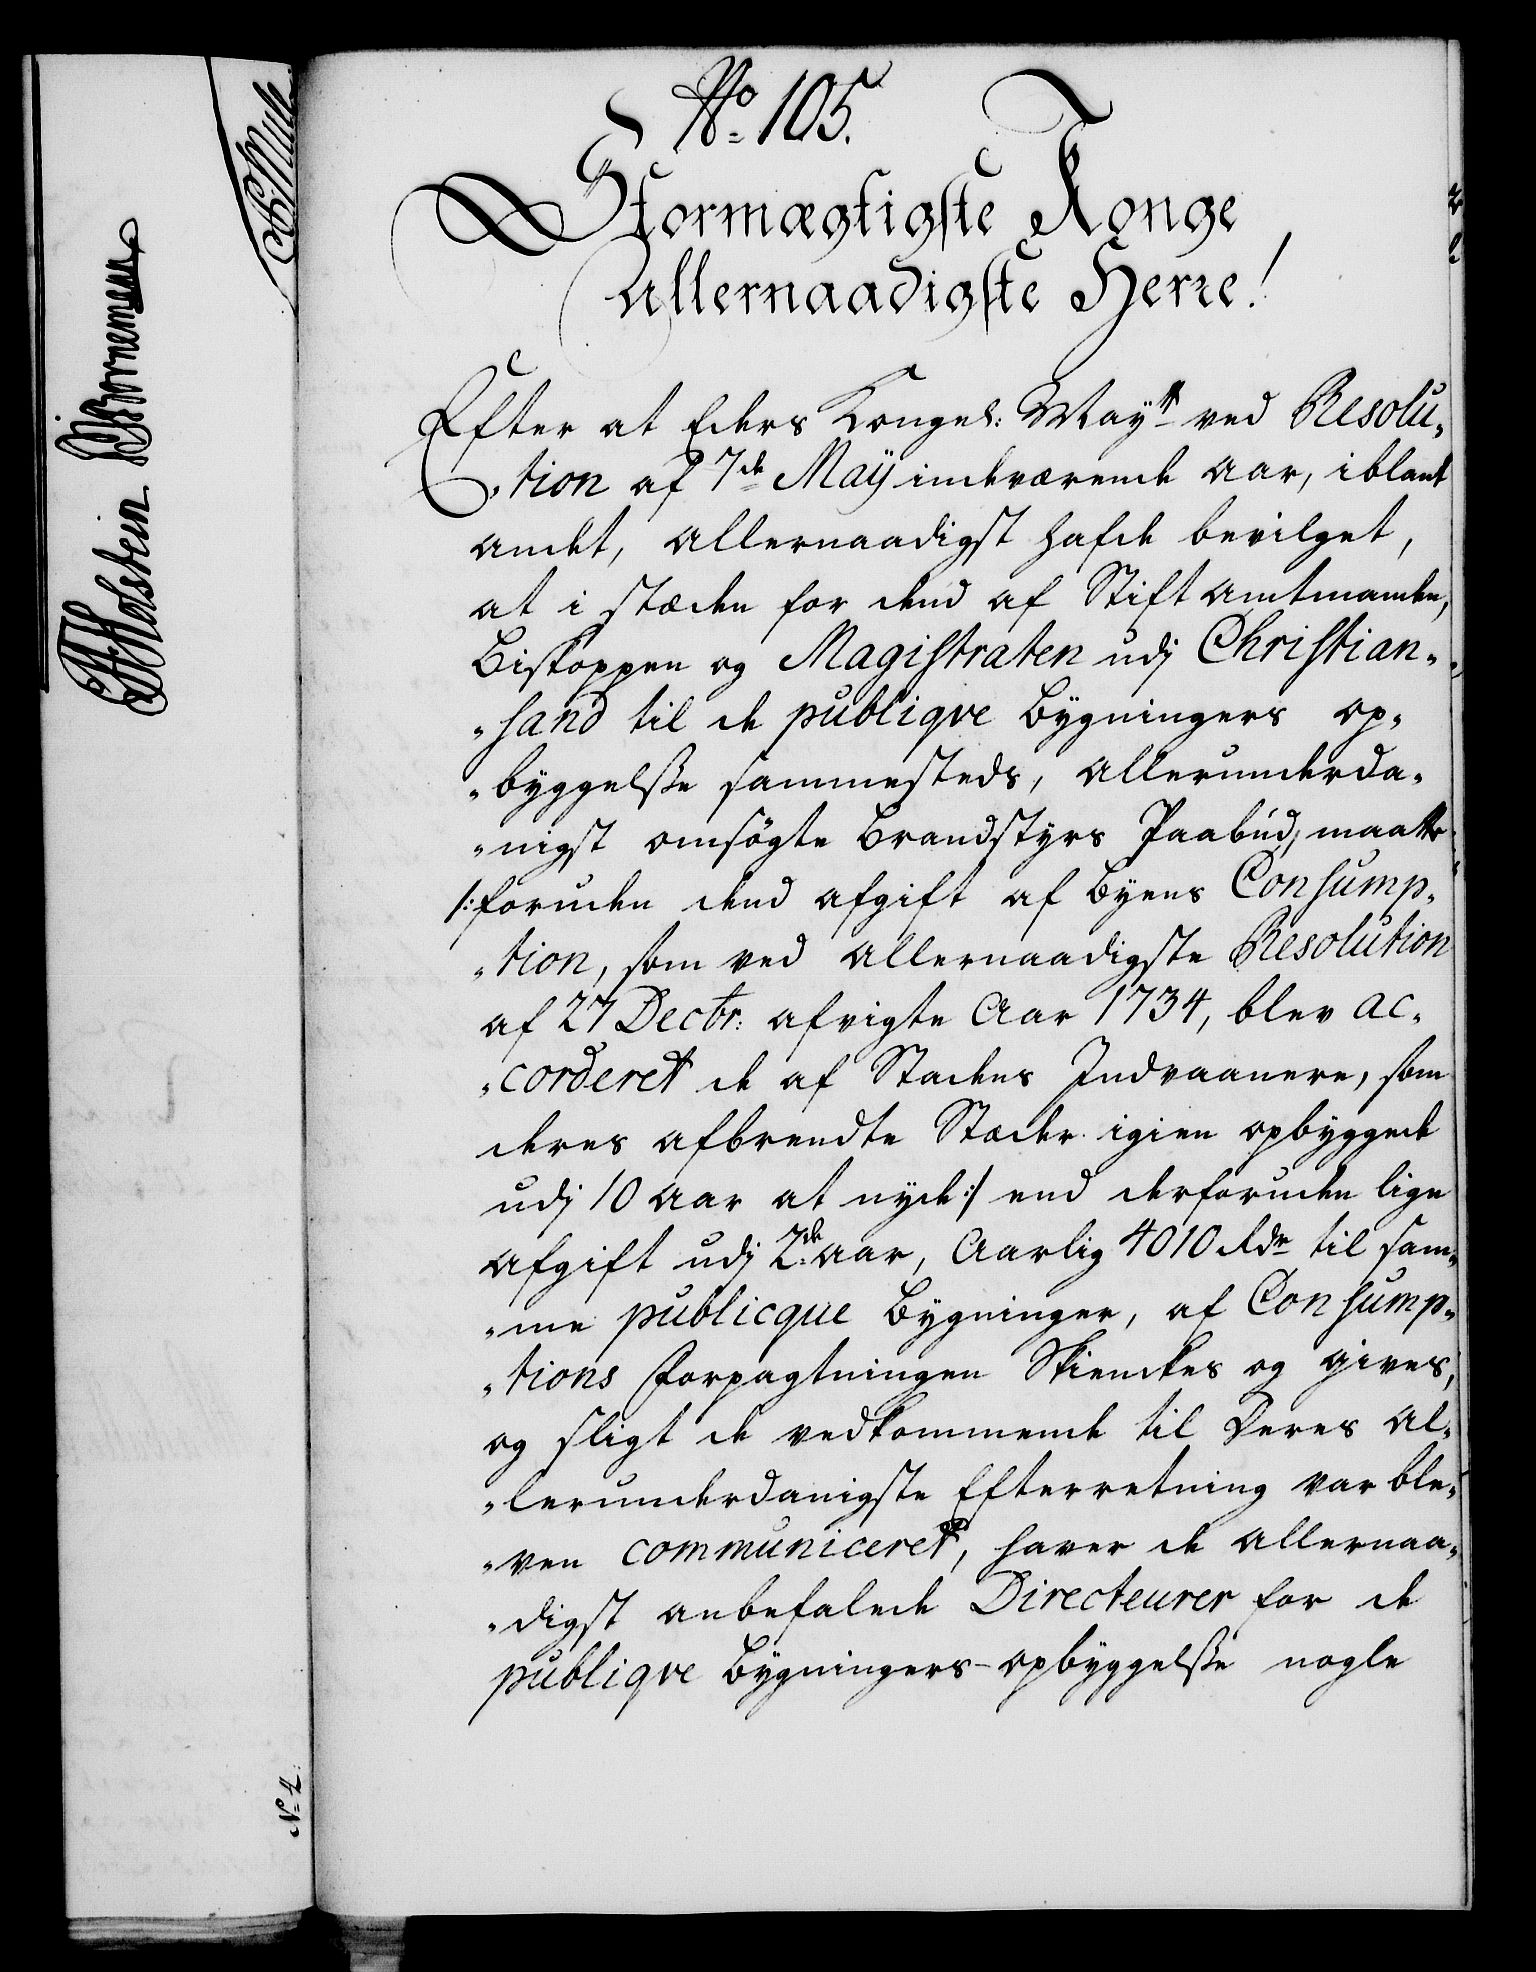 No 105.
Stormægtigste Konge
Allernaadigste Herre!
Efter at Eders Kongel: Mayt ved Resolu-
-tion af 7de Maÿ indeværende aar, iblant
andet, allernaadigst hafde bevilget,
at i stæden for dend af Stiftamtmanden,
Biskoppen og Magistraten udj Christian-
-sand til de publiqve Bÿgningers op-
-byggelsse sammesteds, allerunderda-
-nigst omsögte Brandstÿrs Paabud, maatte
/:foruden dend afgift af Bÿens Consump-
-tion, som ved allernaadigste Resolution
af 27 Decbr: afvigte Aar 1734, blev ac-
-corderet de af Stadens Indvaanere, som
deres afbrendte Stæder igien opbyggede
udj 10 aar at nyde:/ end derforuden lige
afgift udj 2de aar, Aarlig 4010 Rdr til sam-
-me publicque Bÿgninger, af Consump-
-tions Forpagtningen Skienckes og gives,
og sligt de vedkommende til Deres al-
-lerunderdanigste Efterretning var ble-
-ven communiceret, haver de allernaa-
-digst anbefalede Directeurer for de
publiqve Bÿgningers-opbyggelsse nogle
CA Holstein
B Bornemann
No 4.